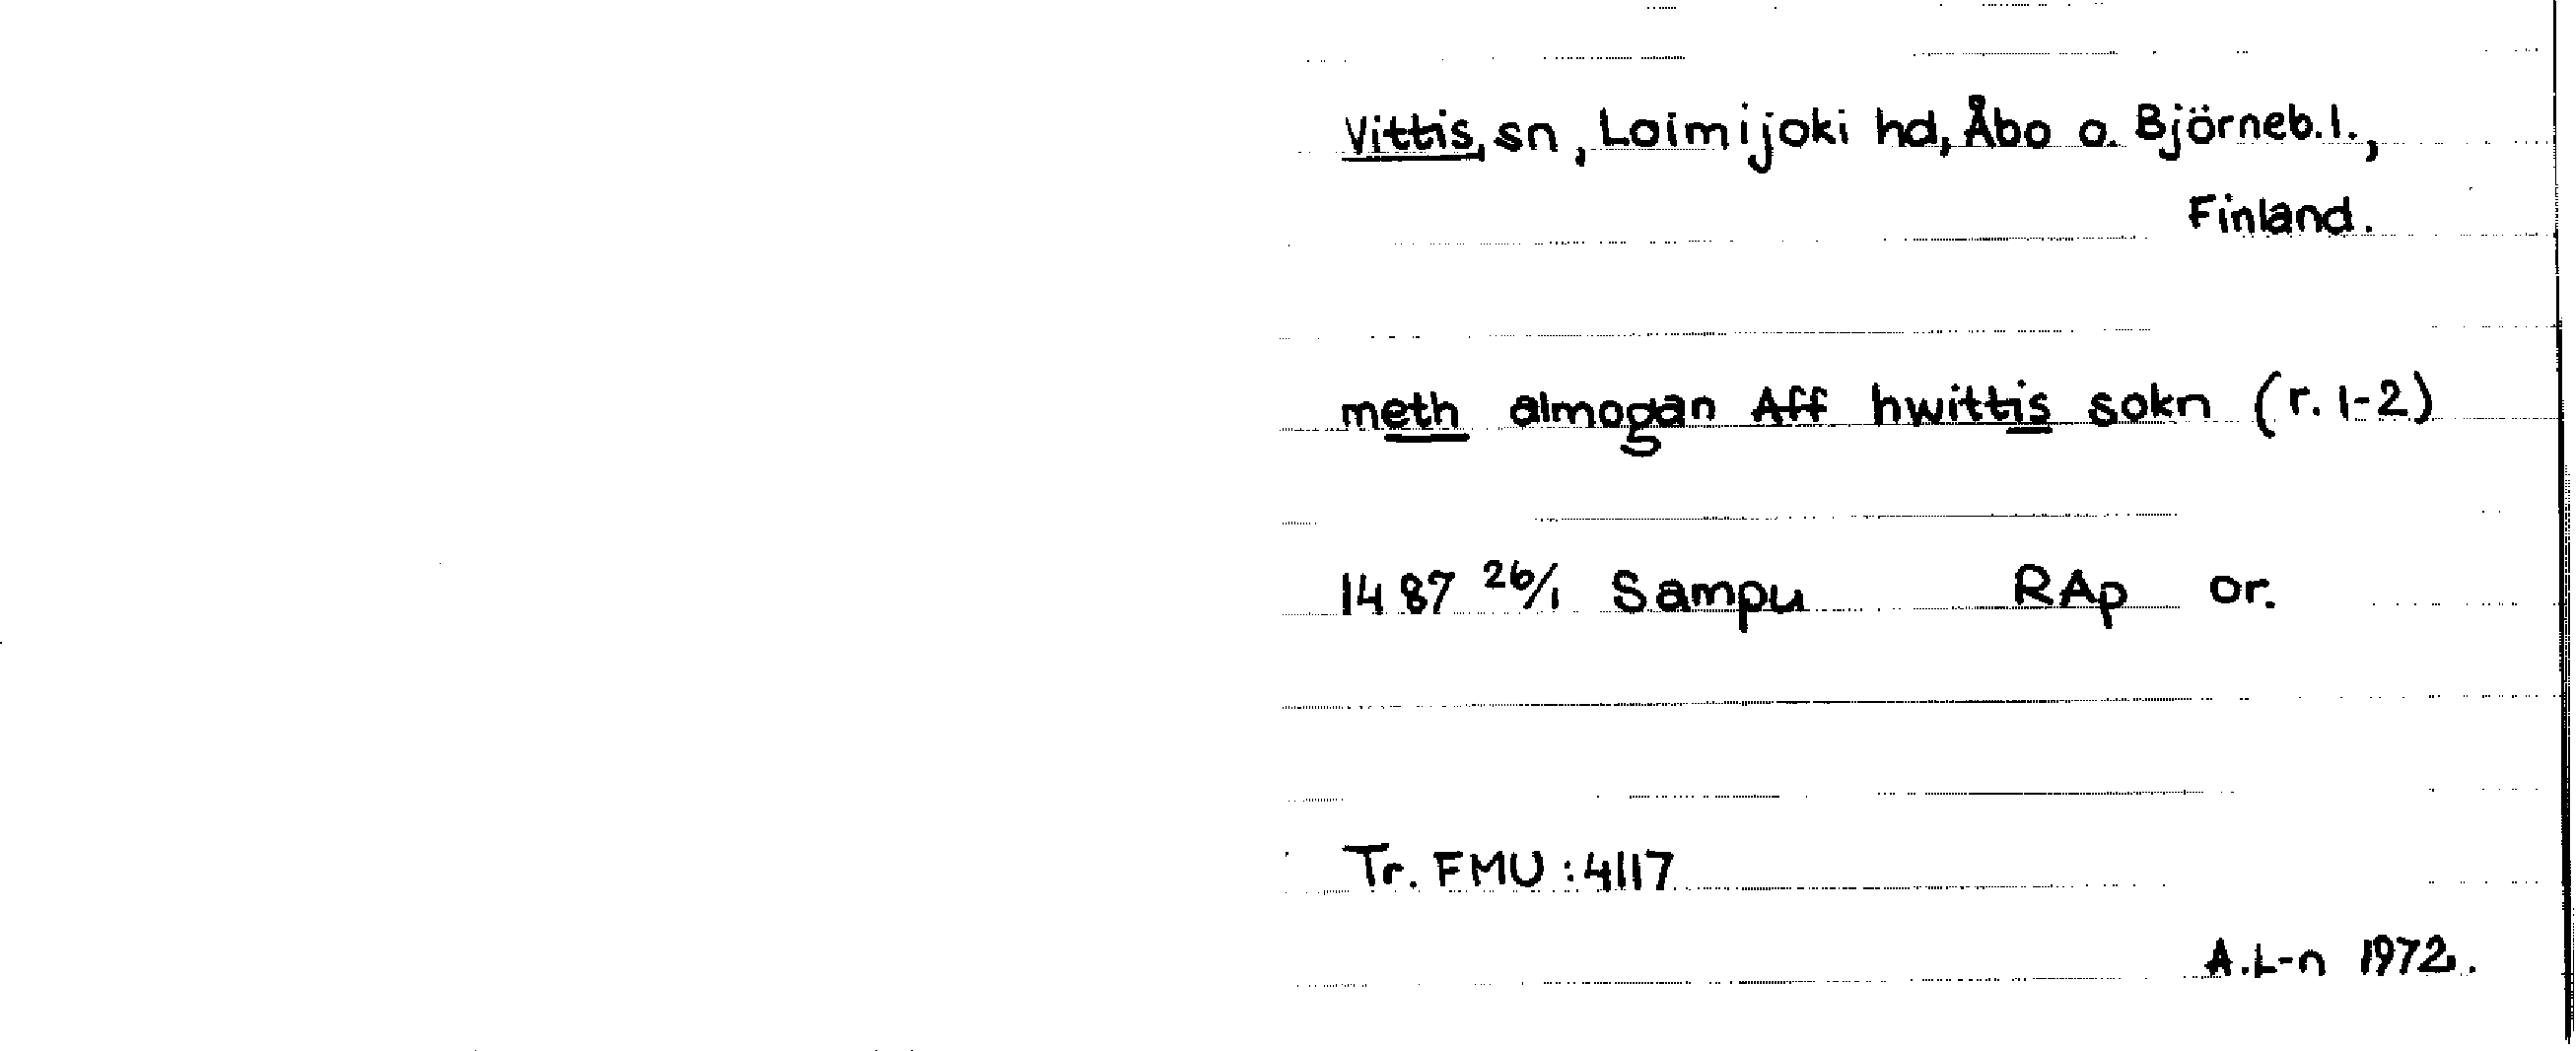 Vittis, sn, Loimijoki hd, Åbo o. Björneb.l.,
Finland.
meth almogan Aff hwittis sokn (r. 1-2)
1487 26/1 Sampu RAp or.
Tr. FMU : 4117
A.L-n 1972.